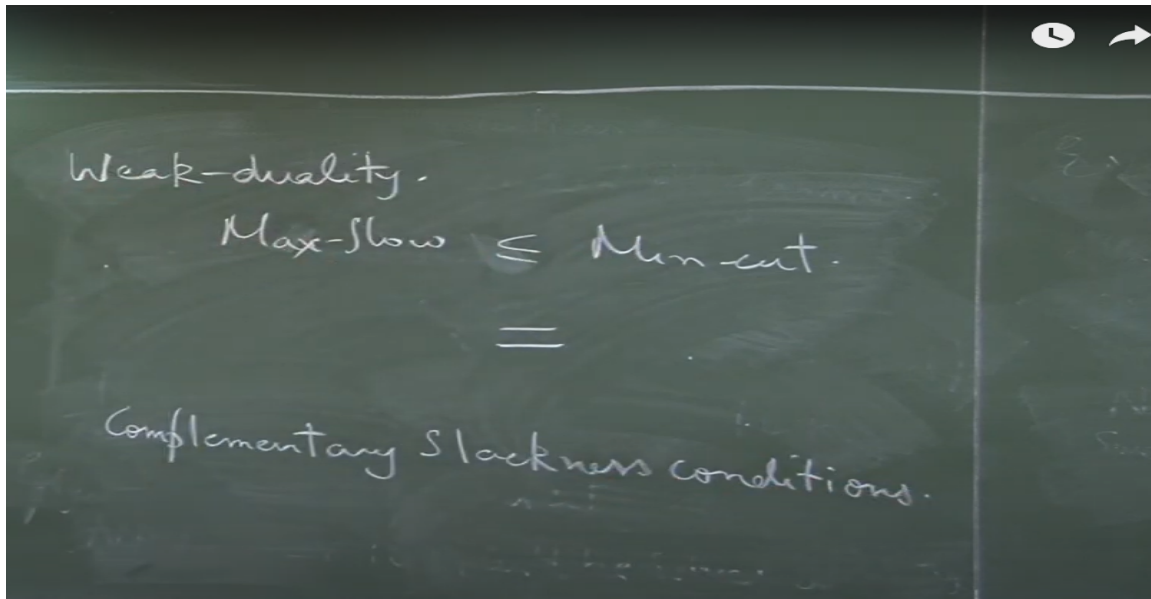 Weak-duality.
Max-flow ≤ Min-cut.
=
Complementary Slackness conditions.